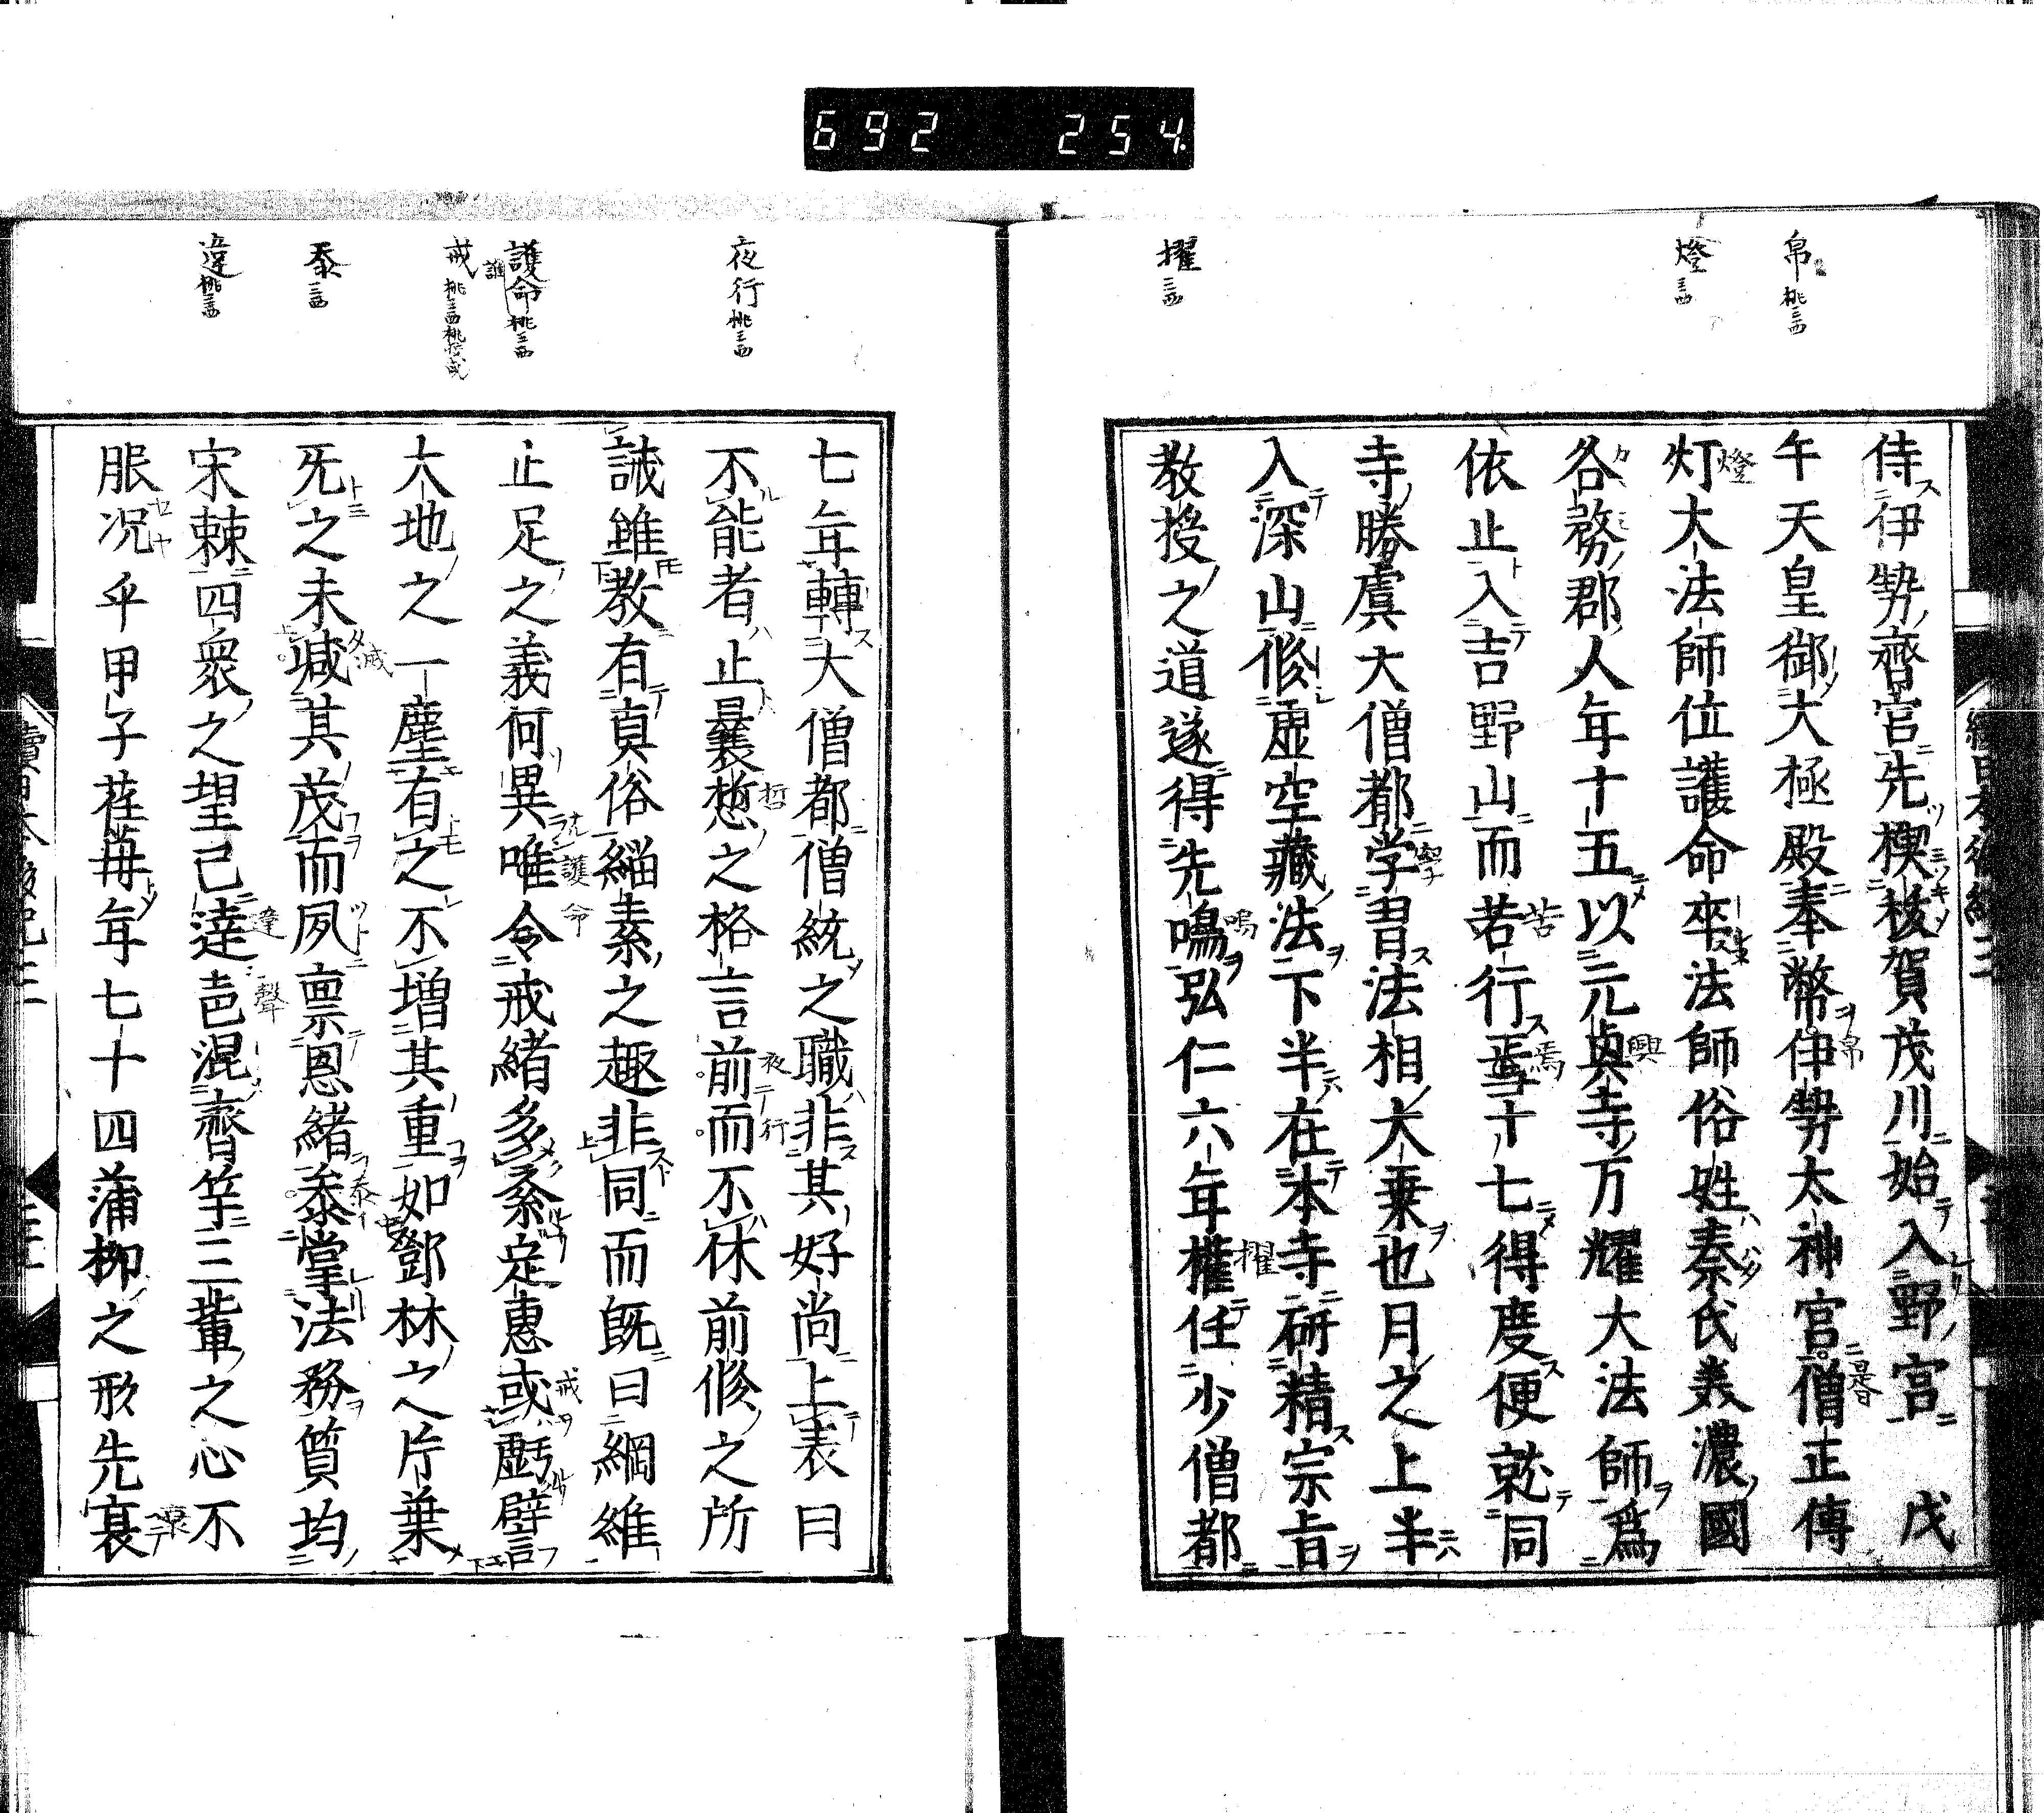 692 254
帛 桃三西
燈 三西
擢 三西
侍伊勢齊宮先禊祓賀茂川始入野宮 戊
午天皇御大極殿奉幣伊勢太神宮僧正傳
灯大法師位護命卒法師俗姓秦氏美濃國
各務郡人年十五以元興寺万耀大法師爲
依止入吉野山而若行焉十七得度便就同
寺勝虞大僧都学習法相大乗也月之上半
入深山修虚空藏法下半在本寺研精宗旨
教授之道遂得先鳴弘仁六年權任少僧都
夜行 桃三西
護命 桃三西
戒
泰 三西
違 桃三西
七年轉大僧都僧統之職非其好尚上表曰
不能者止曩悊之格言前而不休前修之所
誡雖教有真俗緇素之趣非同而既曰綱維
止足之義何異唯令戒緒多紊定惠或虧譬
大地之一塵有之不増其重如鄧林之片葉
死之未減其茂而夙禀恩緒泰掌法務質均
宋棘四衆之望己達邑混齊竽三輩之心不
服况乎甲子荏苒年七十四蒲柳之形先衰